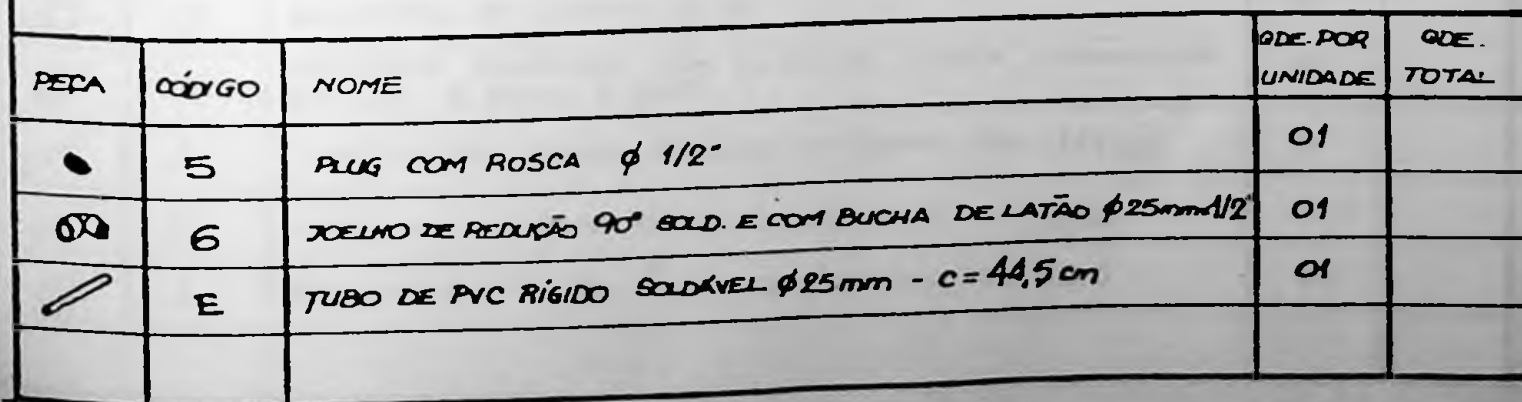 PEÇA CÓDIGO NOME QDE. POR UNIDADE QDE. TOTAL
5 PLUG COM ROSCA ϕ 1/2"
01
6 JOELHO DE REDUÇÃO 90° SOLD. E COM BUCHA DE LATÃO ϕ25mmx1/2 01
E TUBO DE PVC RÍGIDO SOLDÁVEL ϕ25mm - C=44,5cm 01